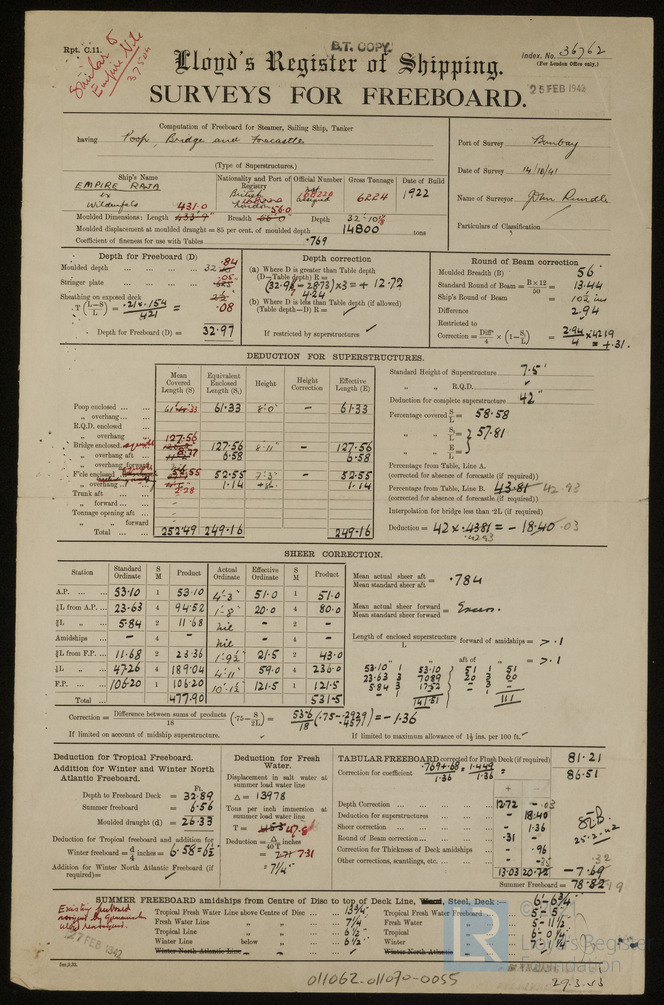 Rpt. C.11.
Similar to Empire Nile 37504
B.T. COPY.
Index. No. 36762
(For London Office only.)
Lloyd's Register of Shipping.
25 FEB 1942
SURVEYS FOR FREEBOARD.
Computation of Freeboard for Steamer, Sailing Ship, Tanker
having Poop, Bridge and Forecastle
(Type of Superstructures.)
Port of Survey Bombay
Date of Survey 14/10/41
Name of Surveyor
Particulars of Classification
Ship's Name
Nationality and Port of Registry
Official Number
Gross Tonnage
Date of Build
EMPIRE RAJA
ex
Wildenfels
British
London
not assigned
6224
1922
431.0
56.0
Moulded Dimensions: Length 433'-9" Breadth 56.0 Depth 32'-10⅝
Moulded displacement at moulded draught = 85 per cent. of moulded depth 14800 tons
Coefficient of fineness for use with Tables .769
Depth for Freeboard (D)
Moulded depth 32.84
Stringer plate .05
Sheathing on exposed deck
T (L-S/L) = .21 x .154 / 421 = .08
Depth for Freeboard (D) = 32.97
Depth correction
(a) Where D is greater than Table depth
(D-Table depth) R =
(32.97 - 28.73) x 3 = + 12.72
4.24
(b) Where D is less than Table depth (if allowed)
(Table depth-D) R =
If restricted by superstructures
Round of Beam correction
Moulded Breadth (B) 56'
Standard Round of Beam = B x 12 / 50 = 13.44
Ship's Round of Beam = 10½ ins
Difference 2.94
Restricted to
Correction = Diff / 4 x (1 - S₁/L) = 2.94/4 x .4219 = +.31.
DEDUCTION FOR SUPERSTRUCTURES.
Mean Covered Length (S)
Equivalent Enclosed Length (S₁)
Height
Height Correction
Effective Length (E)
Poop enclosed 61.33 61.33 8'.0" - 61.33
„ overhang
R.Q.D. enclosed
„ overhang
Bridge enclosed 127.56 127.56 8'.11" - 127.56
„ overhang aft 6.58 6.58
„ overhang forward
F'cle enclosed 52.55 52.55 7'.3" - 52.55
„ overhang 2.28 1.14 1.14
Trunk aft -
„ forward -
Tonnage opening aft -
„ „ forward -
Total 252.49 249.16 249.16
Standard Height of Superstructure 7.5'
„ „ R.Q.D.
Deduction for complete superstructure 42"
Percentage covered S/L = 58.58
„ „ S₁/L = 57.81
„ „ E/L =
Percentage from Table, Line A.
(corrected for absence of forecastle (if required))
Percentage from Table, Line B. 43.81 42.93
(corrected for absence of forecastle (if required))
Interpolation for bridge less than ·2L (if required)
Deduction = 42 x .4381 = - 18.40 .03
.4293
SHEER CORRECTION.
Station
Standard Ordinate
S M
Product
Actual Ordinate
Effective Ordinate
S M
Product
A.P. 53.10 1 53.10 4'.3" 51.0 1 51.0
⅙L from A.P. 23.63 4 94.52 1'.8" 20.0 4 80.0
⅓L „ 5.84 2 11.68 Nil - 2 -
Amidships - 4 - Nil - 4 -
⅓L from F.P. 11.68 2 23.36 1'.9½" 21.5 2 43.0
⅙L „ 47.26 4 189.04 4'.11" 59.0 4 236.0
F.P. 106.20 1 106.20 10'.1½" 121.5 1 121.5
Total 477.90 531.5
Mean actual sheer aft / Mean standard sheer aft = .784
Mean actual sheer forward / Mean standard sheer forward = Excess.
Length of enclosed superstructure / L forward of amidships = > .1
„ „ aft of „ = > .1
53.10 1 53.10 51 1 51
23.63 3 70.89 20 3 60
5.84 3 17.52 - 3 -
141.51 111
Correction = Difference between sums of products / 18 (·75 - S/2L) = 53.6/18 (.75 - .2929) = - 1.36
.4571
If limited on account of midship superstructure.
If limited to maximum allowance of 1½ ins. per 100 ft.
Deduction for Tropical Freeboard.
Addition for Winter and Winter North Atlantic Freeboard.
Ft.
Depth to Freeboard Deck = 32.89
Summer freeboard = 6.56
Moulded draught (d) = 26.33
Deduction for Tropical freeboard and addition for
Winter freeboard = d/4 inches = 6.58 = 6½"
Addition for Winter North Atlantic Freeboard (if required) =
Deduction for Fresh Water.
Displacement in salt water at summer load water line
Δ = 13978
Tons per inch immersion at summer load water line
T = 47.8
Deduction = Δ / 40 T inches
= 7.31
= 7¼"
TABULAR FREEBOARD corrected for Flush Deck (if required) 81.21
Correction for coefficient .769 + .68 / 1.36 = 1.449 / 1.36 = 86.51
+ -
Depth Correction 12.72 - .03
Deduction for superstructures - 18.40
Sheer correction - 1.36
Round of Beam correction .31 -
Correction for Thickness of Deck amidships - .96
Other corrections, scantlings, etc. -
13.03 20.72 - 7.69
.32
Summer Freeboard = 78.82 19
25-2-42
SUMMER FREEBOARD amidships from Centre of Disc to top of Deck Line, Wood, Steel, Deck :- 6'-6¾"
Existing freeboard assigned by Germanischer Lloyd reassigned.
27 FEB 1942
Tropical Fresh Water Line above Centre of Disc 13¾"
Fresh Water Line „ „ 7¼"
Tropical Line „ „ 6½"
Winter Line below „ 6½"
Winter North Atlantic Line „ „
Tropical Fresh Water Freeboard 5'-5"
Fresh Water „ 5'-11½"
Tropical „ 6'-0¼"
Winter „ 7'-1¼"
Winter North Atlantic „
© 2020
Lloyd's Register
Foundation
29.3.43
011062-011070-0055